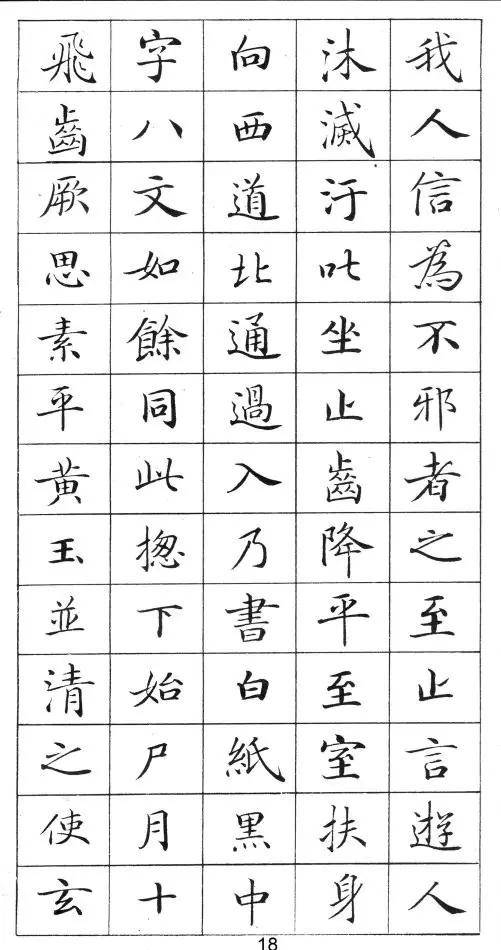 我人信為不邪者之至止言遊人
沐滅汙叱坐止齒降平至室扶身
向西道北通過入乃書白紙黑中
字八文如餘同此揔下始尸月十
飛齒厥思素平黃玉並清之使玄
18